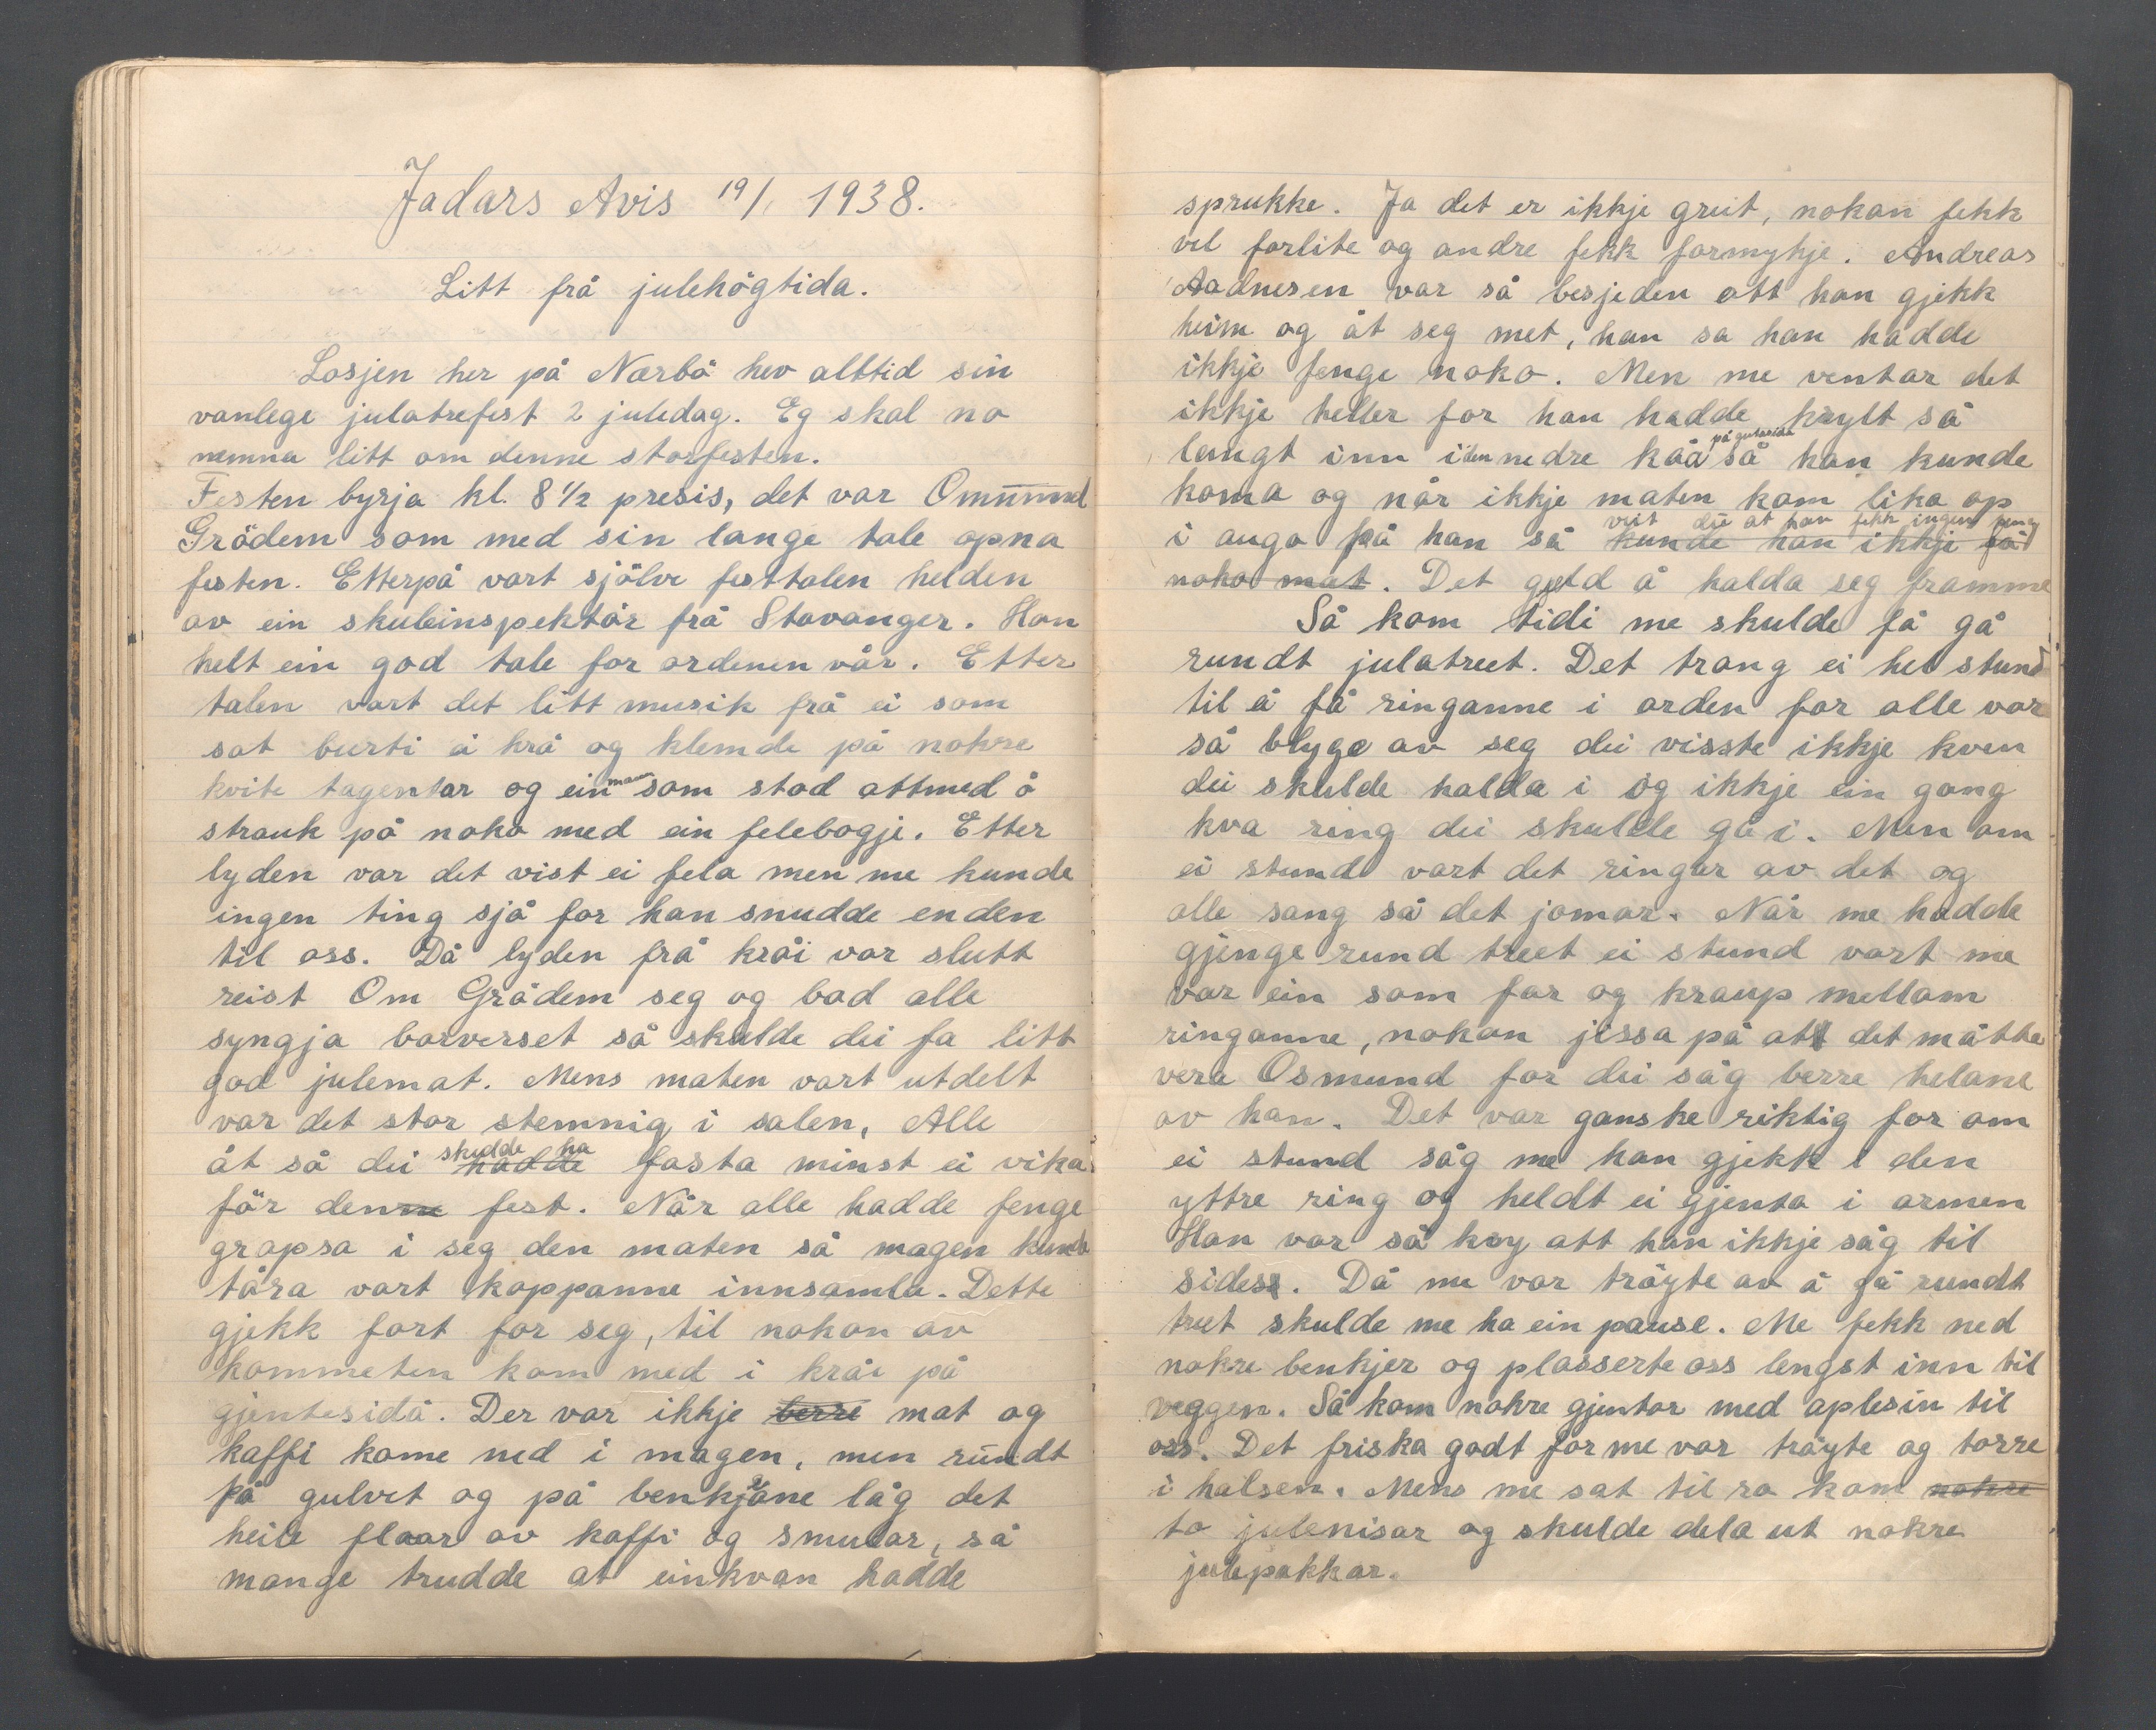 Jadars Avis 19/1 1938.
Litt frå julehögtida.
Losjen her på Nærbö hev alltid sin
vanlege julatrefest 2 juledag. Eg skal no
nemna litt om denne storfesten.
Festen byrja kl. 8 1/2 presis, det var Omund
Grödem som med sin lange tale opna
festen. Etterpå vart sjölve festtalen helden
av ein skuleinspektör frå Stavanger. Han
helt ein god tale for ordenen vår. Etter
talen vart det litt musik frå ei som
sat burti ei krå og klemde på nokre
kvite tagentar og ein mann som stod attmed å
strauk på noko med ein felebogje. Etter
lyden var det vist ei fela men me kunde
ingen ting sjå for han snudde enden
til oss. Då lyden frå kråi var slutt
reist Om Grödem seg og bad alle
syngja borverset så skulde dei fa litt
god julemat. Mens maten vart utdelt
var det stor stemnig i salen, Alle
åt så dei skudde ha hadde fasta minst ei vika
för denne fest. Når alle hadde fenge
grapsa i seg den maten så magen kunde
tåra vart koppanne innsamla. Dette
gjekk fort for seg, til nokon av
kommeten kom med i kråi på
gjentesidå. Der var ikkje berre mat og
kaffi kome ned i magen, men rundt
på gulvet og på benkjane låg det
heile flaar av kaffi og smular, så
mange trudde at einkvan hadde
sprukke. Ja det er ikkje greit, nokon fekk
vel forlite og andre fekk formykje. Andreas
Aadnesen var så besjeden att han gjekk
heim og åt seg met, han sa han hadde
ikkje fenge noko. Men me ventar det
ikkje heller for han hadde krylt så
langt inn i den nedre kåå på gutasida så han kunde
koma og når ikkje maten kom lika op
i augo på han så vist dei at han fekk ingen ting kunde han ikkje få
noko mat. Det geld å halda seg framme
Så kom tidi me skulde få gå
rundt julatreet. Det trang ei hev stund
til å få ringanne i orden for alle var
så blyge av seg dei visste ikkje kven
dei skulde halda i og ikkje ein gong
kva ring dei skulde gå i. Men om
ei stund vart det ringar av det og
alle sang så det jomar. Når me hadde
gjenge rund treet ei stund vart me
var ein som for og kraup mellom
ringanne, nokon jissa på att det måtte
vera Osmund for dei såg berre helane
av han. Det var ganske riktig for om
ei stund såg me han gjekk i den
yttre ring og heldt ei gjenta i armen
Han var så kry att han ikkje såg til
sides. Då me var tröyte av å gå rundt
treet skulde me ha ein pause. Me fekk ned
nokre benkjer og plasserte oss lengst inn til
veggen. Så kom nokre gjentor med aplesin til
oss. Det friska godt for me var tröyte og torre
i halsen. Mens me sat til ro kom nokre
to julenisar og skulde dela ut nokre
julepakkar.